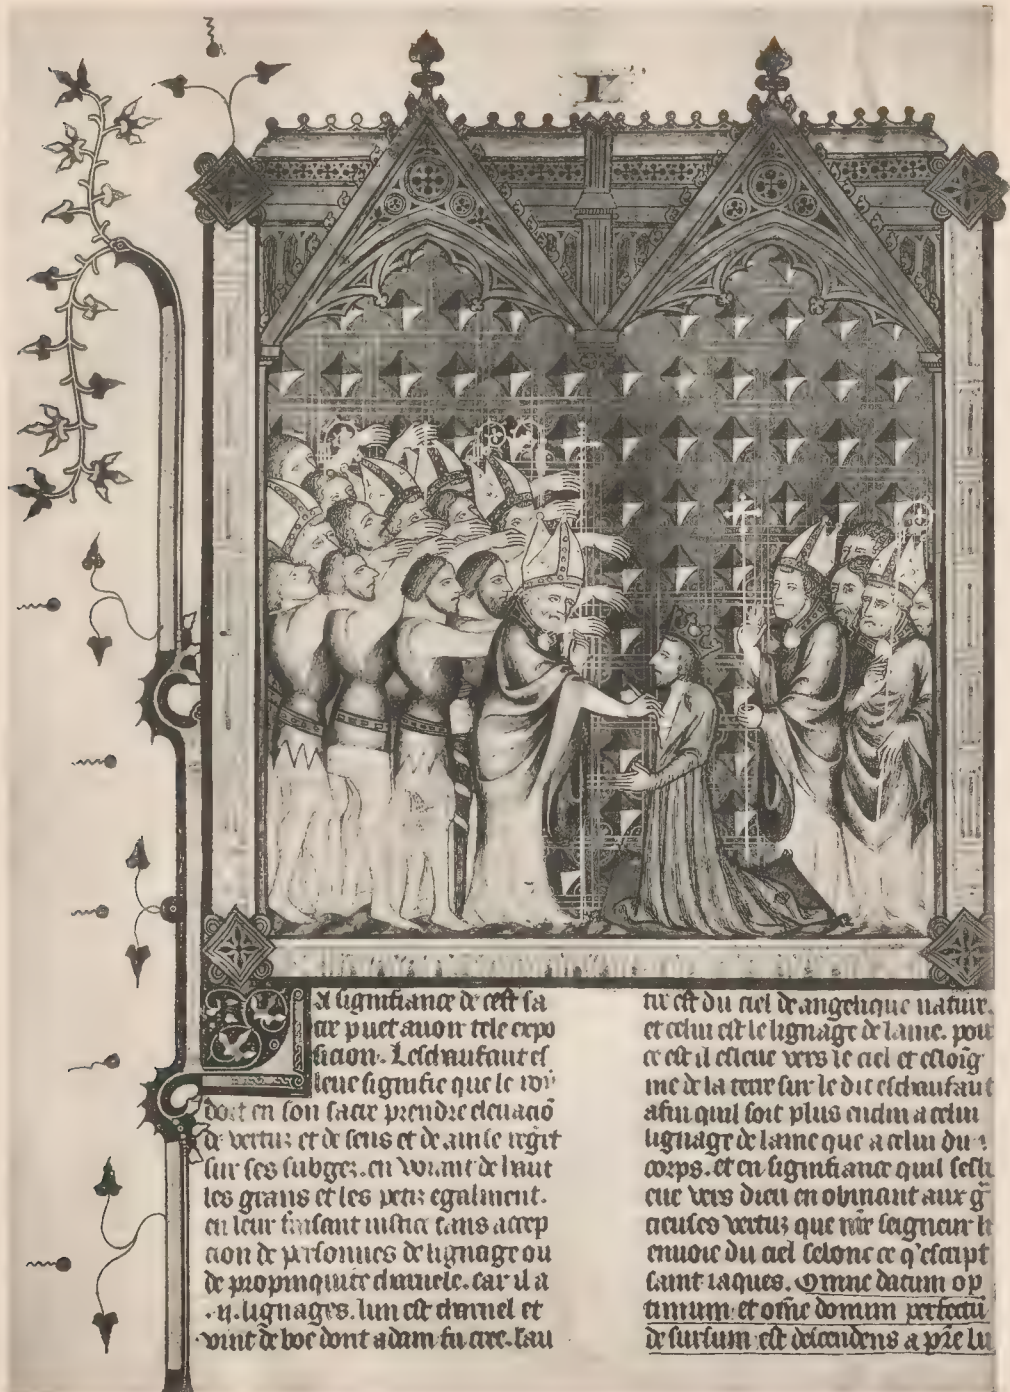 La significance de cest sa
cre puet auoir tele expo
sicion. Leschaufaut es
leue signifie que le roy
doit en son sacre prendre eleuacio᷑
de vertuz et de sens et de
sur ses subgez. en voiant de haut
les grans et les petiz egalment.
en leur faisant iustice sans accep
cion de personnes de lignage ou
de propinquite charnele. car il a
.ii. lignages. lun est charnel et
vint de boe dont adam fu cree. lau
tre est du ciel de angelique natur.
et celui est le lignage de lame. pour
ce est il esleue vers le ciel et esloig
me de la terre sur le dit eschaufaut
afin quil soit plus enclin a celui
lignage de lame que a celui du
corps. et en significance quil sesli
eue vers dieu en obeissant aux g̃
cieuses vertuz que nr̃e seigneur li
enuoie du ciel selonc ce q'escript
saint iaques. Omne datum op
timum et om̃e donum perfectũ
de sursum est descendens a p̃re lu